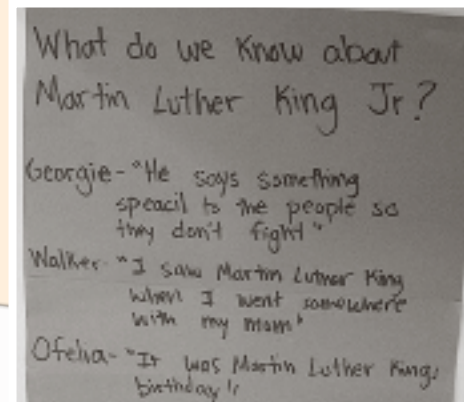 What do we know about
Martin Luther King Jr?
Georgie- "He says something
speacil to the people so
they don't fight"
Walker- "I saw Martin Luther King
when I went somewhere
with my mom"
Ofelia- "It was Martin Luther Kings
birthday"